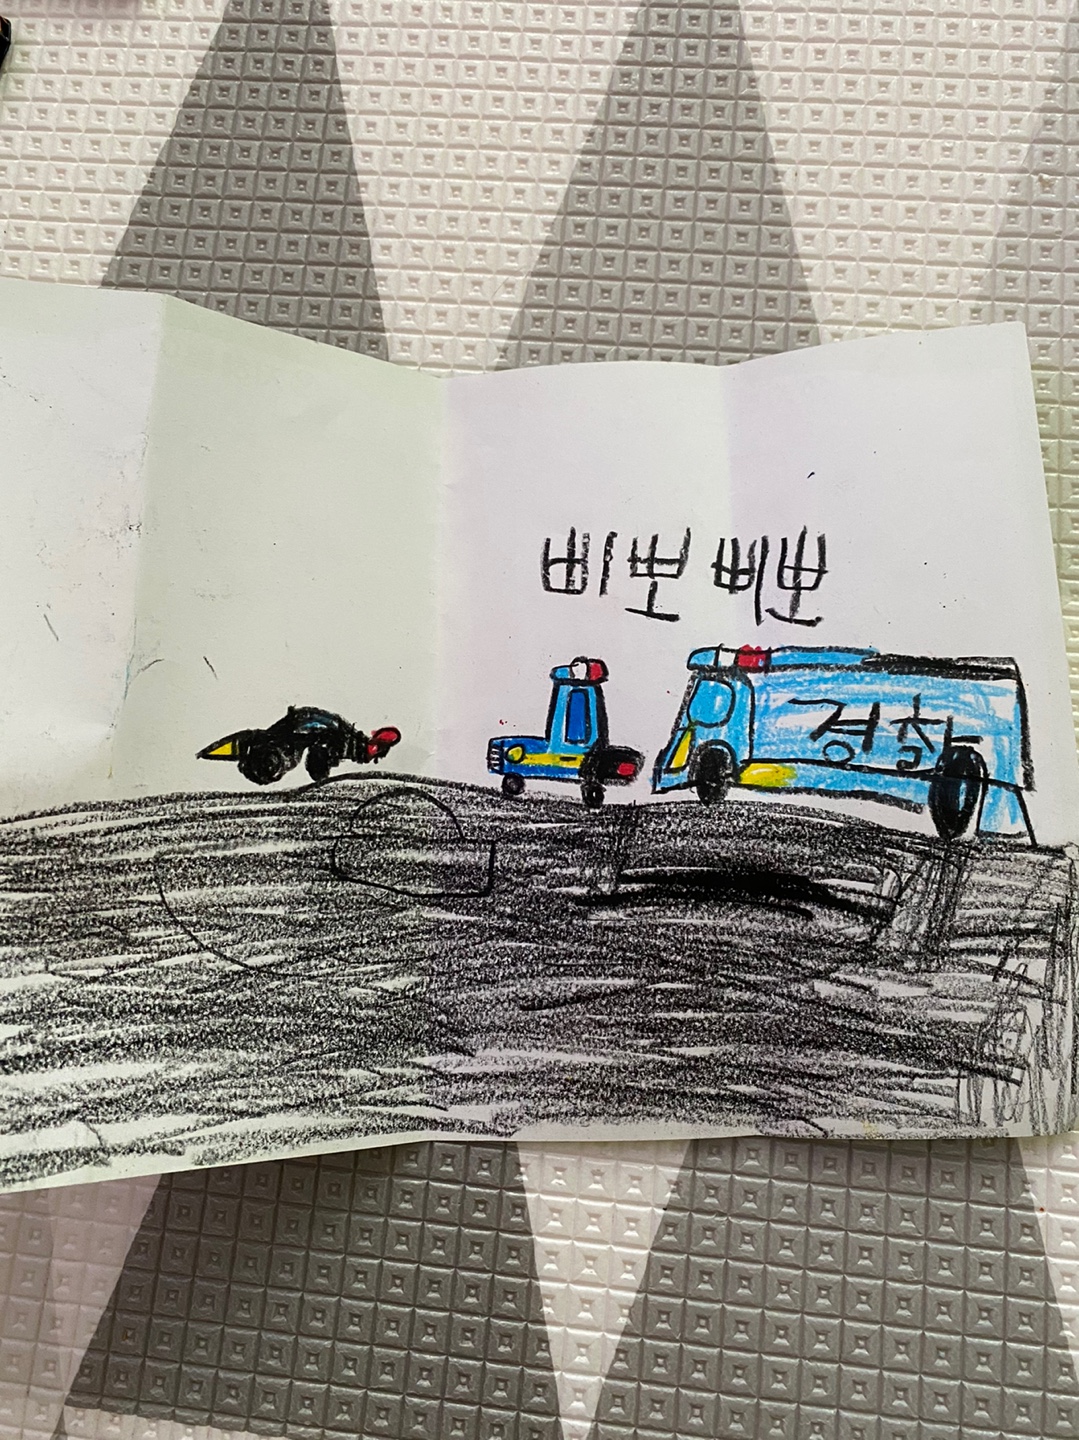 삐뽀삐뽀
경찰